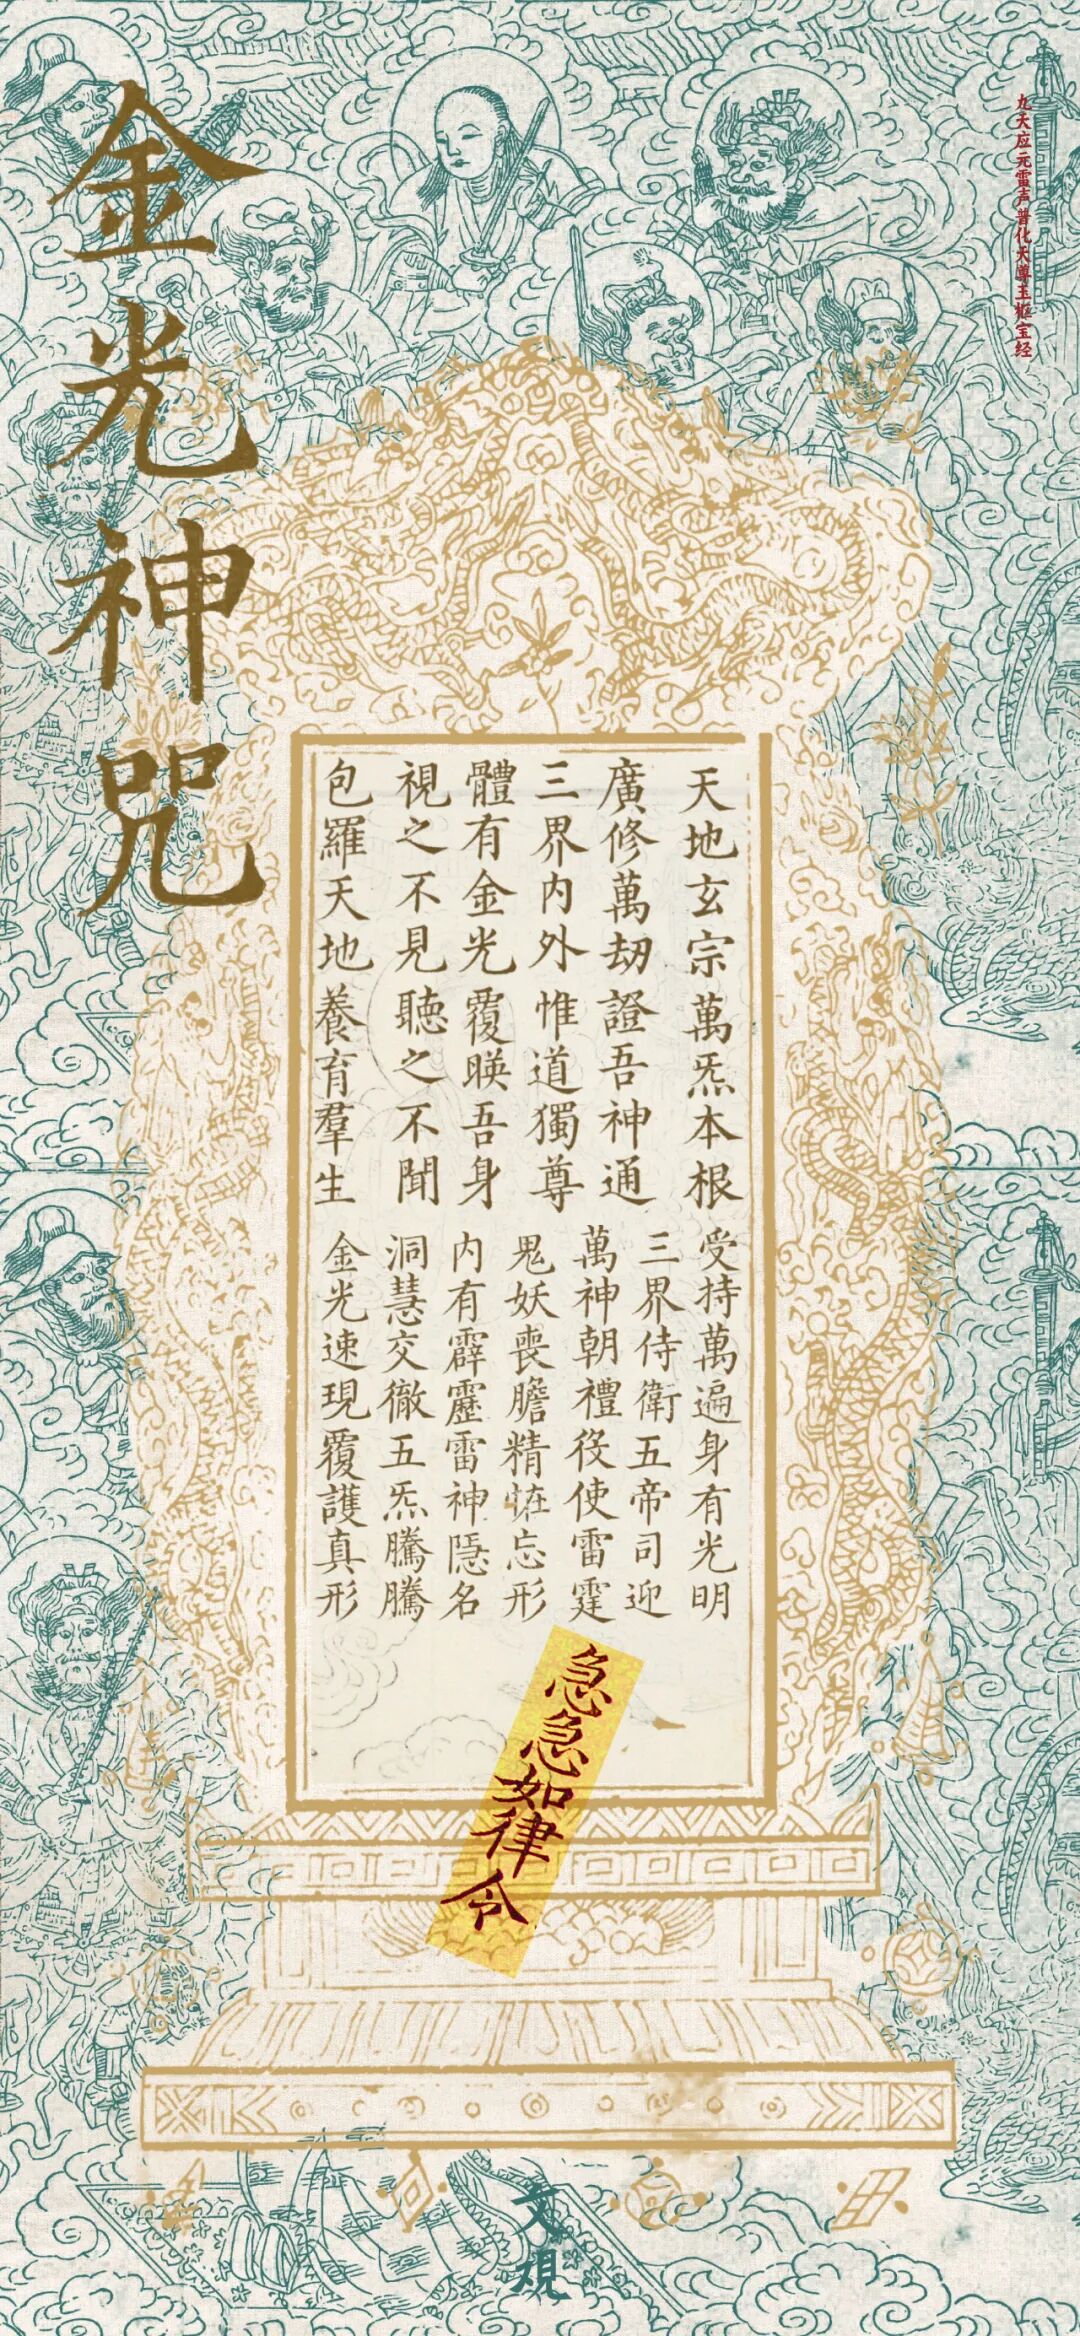 金光神咒
九天应元雷声普化天尊玉枢宝经
天地玄宗萬炁本根
廣修萬劫證吾神通
三界内外惟道獨尊
體有金光覆暎吾身
視之不見聽之不聞
包羅天地養育羣生
受持萬遍身有光明
三界侍衛五帝司迎
萬神朝禮役使雷霆
鬼妖喪膽精恠忘形
内有霹靂雷神隱名
洞慧交徹五炁騰騰
金光速現覆護真形
急急如律令
文